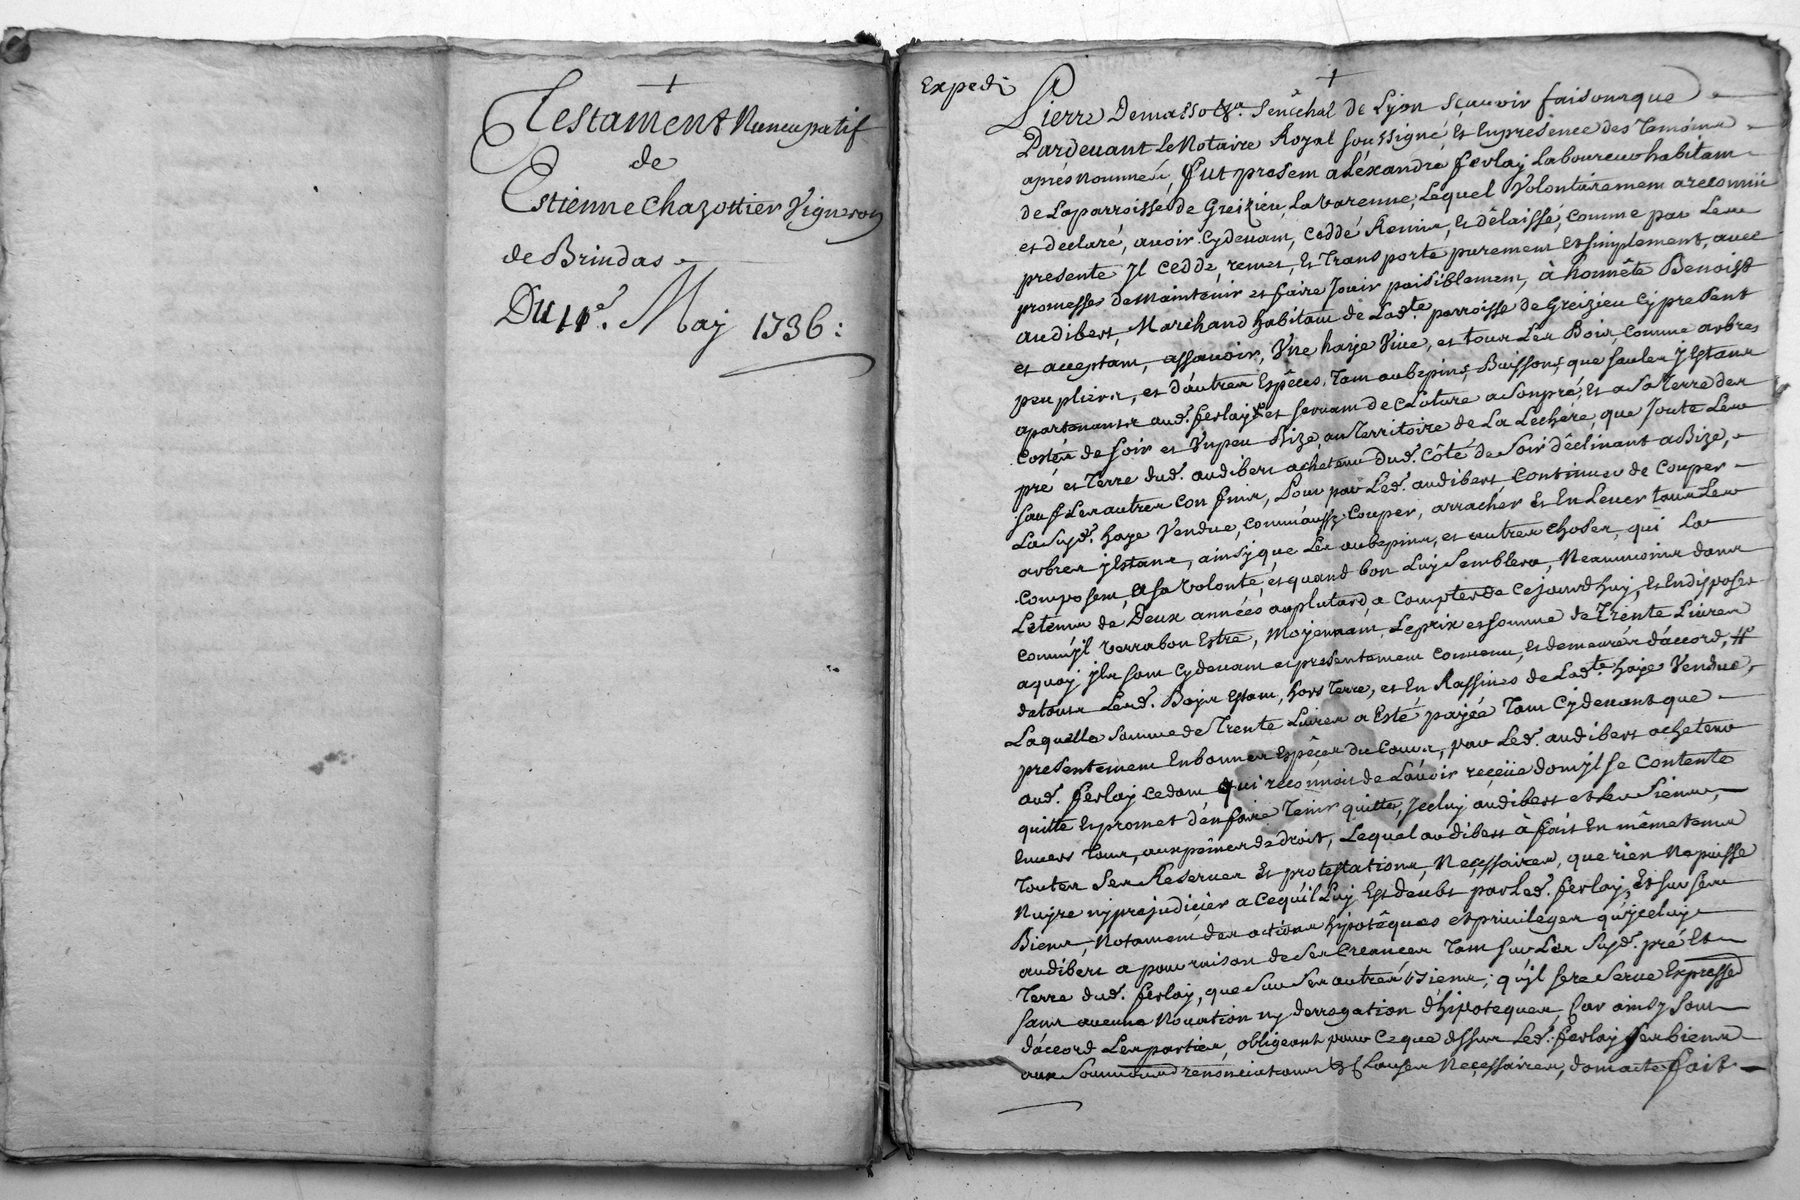 +
Testament Nuncupatif
de
Estienne Chazottier Vigneron
de Brindas
Du 11e. May 1736:
Expedi
+
Pierre Demasso &a. Senêchal de Lyon sçauoir faisons que
Pardeuant Le Notaire Royal soussigné, Et Enpresence des Temoins
apres nommés, fut present aLexandre ferlay Laboureur habitant
de Laparroisse de Greizieu, La Varenne, Lequel Volontairement a reconnu
et declaré, auoir cydeuant, ceddé Remis, Et délaissé, comme par Les
presente Jl cedde, remet, Et Transporte purement Et simplement, auec
promesse de Maintenir et faire Jouir paisiblement, à honnête Benoist
audibert, Marchand habitant de Lad.te parroisse de Greizieu Cy present
et acceptant, assauoir, Vne haye Viue, et tous Les Bois, comme arbres
peupliers, et d'autres Espêces, Tant aubepins, Buissons, que saules Jl Estans
apartenants aud. ferlay et seruant de Cloture a son pré, Et a sa Terre des
costés de soir et Vn peu Bize, au Territoire de La Lechére, que Joute Les
pré et Terre dud. audibert acheteur dud. Côté de soir déclinant a Bize,
sauf Les autres confins, Pour par Led. audibert Continuer de Couper
La susd. haye Vendue, comm'aussy Couper, arracher et EnLeuer tous Les
arbres y Estans, ainsy que Les aubepins, et autres choses, qui La
composent, a sa Volonté, et quand bon Luy Semblera, Neanmoins dans
Le tems de Deux années auplutard, a Compter de Cejourd'huy, et En disposer
comm'jl Verra bon Estre, Moyennant Le prix et somme de Trente Liures
aquoy jls sont Cydeuant et presentement conuenu, et demeurés d'accord,
de tous Lesd. Boys Estant, hors Terre, et En Rassines de Lad.te haye Vendue,
Laquelle somme de Trente Liures a Esté payée Tant Cydeuant que
presentement En bonnes Espêces du Cours, par Led. audibert acheteur
aud. ferlay cedant qui reconnoit de Lauoir reçeüe dont jl se Contente
quitte Et promet d'en faire Tenir quitte, Jceluy audibert et Les Siens,
Enuers Tous, aux peines de droit, Lequel audibert à fait En même tems
Toutes Ses Reserues Et protestations, Neçessaires, que rien Ne puisse
Nuyre ny prejudicier a Cequ'il Luy Est deubt par Led. ferlay, Et sur ses
Biens Notament des actions hipotêques et priuileges qu'jceluy
audibert a pour raison de Ses Creances Tant sur Les Susd. pré Et
Terre dud. ferlay, que sur Ses autres Biens; qu'jl se reserue Expressé
sans aucune Nouation ny derrogation d'hipoteques, Car ainsy sont
d'accord Les parties, obligeant pour Ceque dessus Led. ferlay Ses biens
aux renonciations & Clauses Neçessaires, dont acte fait